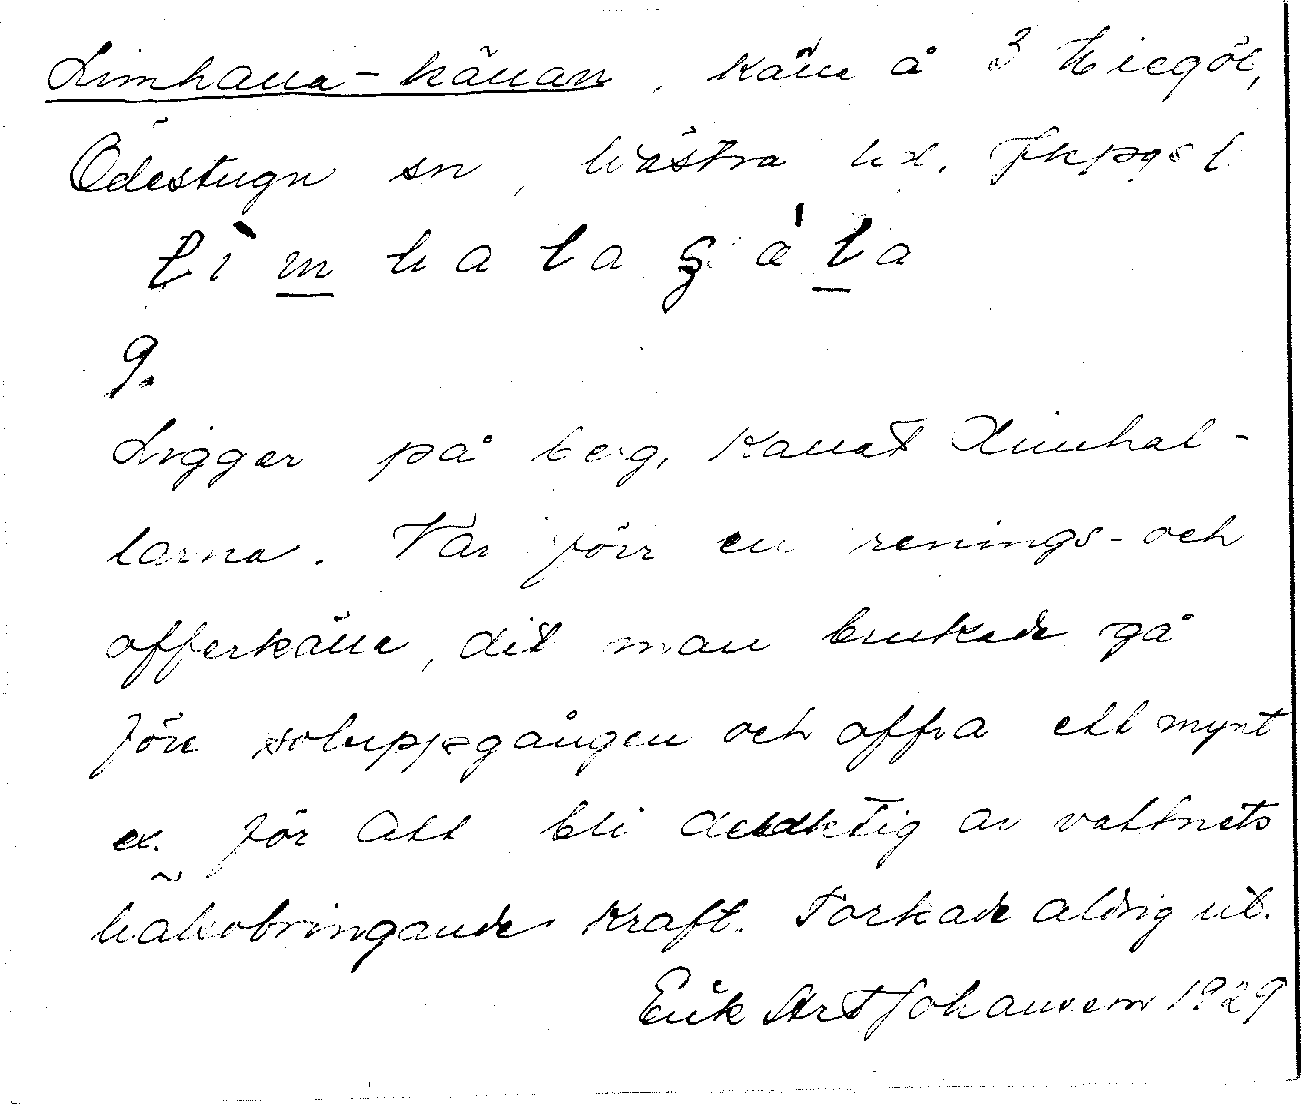 Limhalla-källan, källa å 3 Hiegöl,
Ödestugu sn, Västra hd. Jkpgs l
l i m h a l a ȿ ä l a
9.
Ligger på berg, kallat Limhal-
larna. Var förr en renings- och
offerkälla, dit man brukade gå
före soluppgången och offra ett mynt
el. för att bli delaktig av vattnets
hälsobringande kraft. Torkade aldrig ut.
Erik Johansson 1929